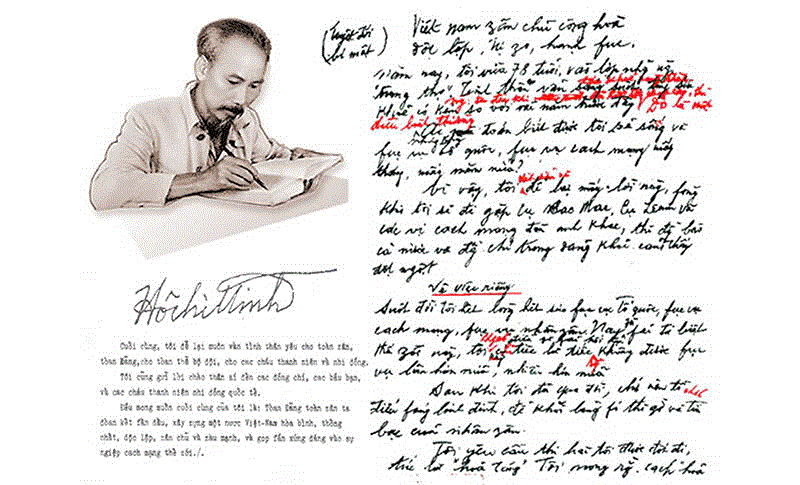 Hồ Chí Minh
Cuối cùng, tôi để lại muôn vàn tình thân yêu cho toàn zân,
toàn Đảng,cho toàn thể bộ đội, cho các cháu thanh niên và nhi đồng.
Tôi cũng gửi lời chào thân ái đến các đồng chí, các bầu bạn,
và các cháu thanh niên nhi đồng quốc tế.
Điều mong muốn cuối cùng của tôi là: Toàn Đảng toàn zân ta
đoàn kết fấn đấu, xây zựng một nước Việt-Nam hòa bình, thống
nhất, độc lập, zân chủ và zàu mạnh, và góp fần xứng đáng vào sự
nghiệp cách mạng thế zới./.
(tuyệt đối
bí mật)
Việt nam zân chủ cộng hoà
độc lập, tự zo, hạnh fúc.
Năm nay, tôi vừa 78 tuổi, vào lớp những ng
"trung thọ" Tinh thần vẫn
Khoẻ có kém so với vài năm trước đây Đó là một
điều bình thường
đoán biết được tôi sẽ sống và
fục vụ tổ quốc, fục vụ cách mạng mấy
tháng, mấy năm nữa?
Vì vậy, tôi để lại mấy lời này, fòng
khi tôi sẽ đi gặp cụ Các Mác, cụ Lênin và
các vị cách mạng đàn anh khác, thì đồng bào
cả nước và đồng chí trong đảng khỏi cảm thấy
đột ngột
Về việc riêng
Suốt đời tôi hết lòng hết sức fục vụ Tổ quốc, fục vụ
cách mạng, fục vụ nhân zân. Nay zù fải từ biệt
thế zới này, tôi không có điều gì fải hối hận
chỉ tiếc là tiếc không được fục
vụ lâu hơn nữa, nhiều hơn nữa
Sau khi tôi đã qua đời, chớ nên tổ chức
điếu fúng linh đình, để khỏi lãng fí thì zờ và tiền
bạc của nhân zân.
Tôi yêu cầu thi hài tôi được đốt đi,
tức là "hoả táng" Tôi mong rằng cách hoả